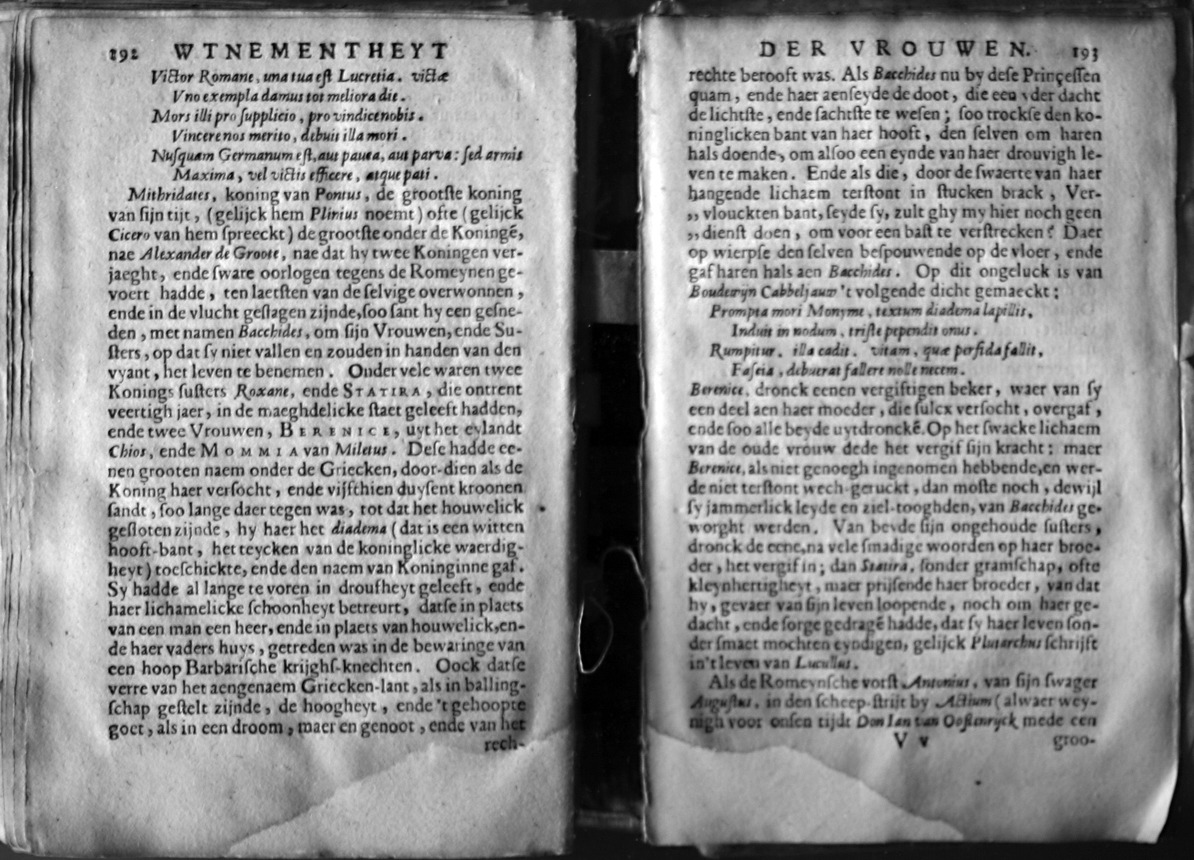 192 WTNEMENTHEYT
Victor Romane, una tua eſt Lucretia. victæ
Vno exempla damus tot meliora die.
Mors illi pro ſupplicio, pro vindice nobis.
Vincere nos merito, debuit illa mori.
Nuſquam Germanum eſt, aut pauca, aut parva: ſed armis
Maxima, vel victis efficere, atque pati.
Mithridates, koning van Pontus, de grootſte koning
van ſijn tijt, (gelijck hem Plinius noemt) ofte (gelijck
Cicero van hem ſpreeckt) de grootſte onder de Koningē,
nae Alexander de Groote, nae dat hy twee Koningen ver-
jaeght, ende ſware oorlogen tegens de Romeynen ge-
voert hadde, ten laetſten van de ſelvige overwonnen,
ende in de vlucht geſlagen zijnde, ſoo ſant hy een geſne-
den, met namen Bacchides, om ſijn Vrouwen, ende Su-
ſters, op dat ſy niet vallen en zouden in handen van den
vyant, het leven te benemen. Onder vele waren twee
Konings ſuſters Roxane, ende STATIRA, die ontrent
veertigh jaer, in de maeghdelicke ſtaet geleeft hadden,
ende twee Vrouwen, BERENICE, uyt het eylandt
Chios, ende MOMMIA van Miletus. Deſe hadde ee-
nen grooten naem onder de Griecken, door-dien als de
Koning haer verſocht, ende vijfthien duyſent kroonen
ſandt, ſoo lange daer tegen was, tot dat het houwelick
geſloten zijnde, hy haer het diadema (dat is een witten
hooft-bant, het teycken van de koninglicke waerdig-
heyt) toeſchickte, ende den naem van Koninginne gaf.
Sy hadde al lange te voren in droufheyt geleeft, ende
haer lichamelicke ſchoonheyt betreurt, datſe in plaets
van een man een heer, ende in plaets van houwelick, en-
de haer vaders huys, getreden was in de bewaringe van
een hoop Barbariſche krijghſ-knechten. Oock datſe
verre van het aengenaem Griecken-lant, als in balling-
ſchap geſtelt zijnde, de hoogheyt, ende 't gehoopte
goet, als in een droom, maer en genoot, ende van het
rech-
DER VROUWEN. 193
rechte berooft was. Als Bacchides nu by deſe Princeſſen
quam, ende haer aenſeyde de doot, die een yder dacht
de lichtſte, ende ſachtſte te weſen; ſoo trockſe den ko-
ninglicken bant van haer hooft, den ſelven om haren
hals doende, om alſoo een eynde van haer drouvigh le-
ven te maken. Ende als die, door de ſwaerte van haer
hangende lichaem terſtont in ſtucken brack, Ver-
„ vlouckten bant, ſeyde ſy, zult ghy my hier noch geen
„ dienſt doen, om voor een baſt te verſtrecken? Daer
op wierpſe den ſelven beſpouwende op de vloer, ende
gaf haren hals aen Bacchides. Op dit ongeluck is van
Boudewijn Cabbeljauw 't volgende dicht gemaeckt:
Prompta mori Monyme, textum diadema lapillis,
Induit in nodum, triſte pependit onus.
Rumpitur, illa cadit, vitam, quæ perfida fallit,
Faſcia, debuerat fallere nolle necem.
Berenice, dronck eenen vergiftigen beker, waer van ſy
een deel aen haer moeder, die ſulcx verſocht, overgaf,
ende ſoo alle beyde uytdronckē. Op het ſwacke lichaem
van de oude vrouw dede het vergif ſijn kracht: maer
Berenice, als niet genoegh ingenomen hebbende, en wer-
de niet terſtont wech-geruckt, dan moſte noch, dewijl
ſy jammerlick leyde en ziel-tooghden, van Bacchides ge-
worght werden. Van beyde ſijn ongehoude ſuſters,
dronck de eene, na vele ſmadige woorden op haer broe-
der, het vergif in; dan Statira, ſonder gramſchap, ofte
kleynhertigheyt, maer prijſende haer broeder, van dat
hy, gevaer van ſijn leven loopende, noch om haer ge-
dacht, ende ſorge gedragē hadde, dat ſy haer leven ſon-
der ſmaet mochten eyndigen, gelijck Plutarchus ſchrijft
in't leven van Lucullus.
Als de Romeynſche vorſt Antonius, van ſijn ſwager
Auguſtus, in den ſcheep-ſtrijt by Actium (alwaer wey-
nigh voor onſen tijdt Don Ian van Ooſtenryck mede een
V v groo-